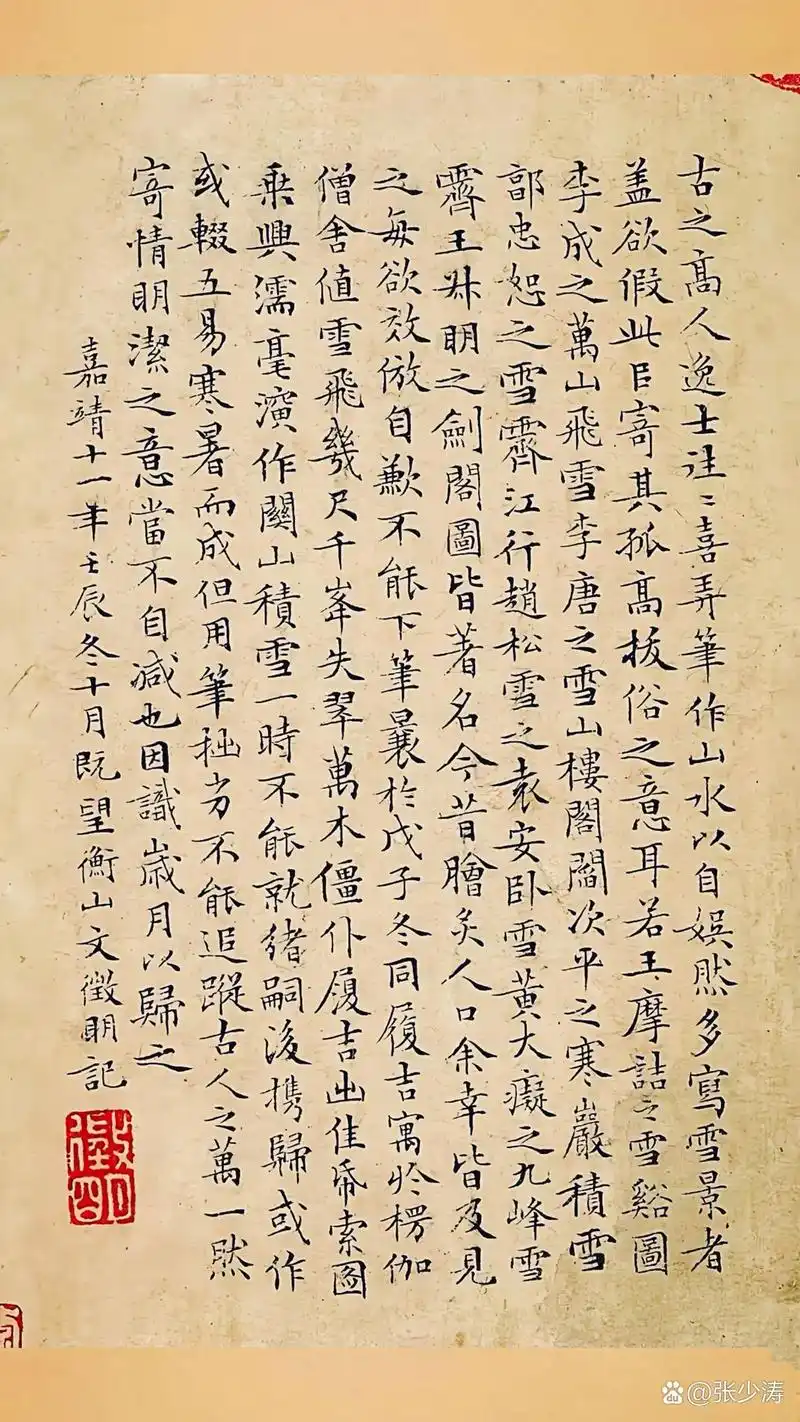 古之高人逸士往〻喜弄筆作山水以自娱然多寫雪景者
盖欲假此㠯寄其孤高拔俗之意耳若王摩詰之雪谿圖
李成之萬山飛雪李唐之雪山樓閣閻次平之寒巖積雪
郭忠恕之雪霽江行趙松雪之袁安卧雪黄大癡之九峰雪
霽王叔明之劍閣圖皆著名今昔膾炙人口余幸皆及見
之每欲效倣自歉不能下筆曩於戊子冬同履吉寓於楞伽
僧舍值雪飛幾尺千峯失翠萬木僵仆履吉出佳帋索圖
乗興濡毫演作關山積雪一時不能就緒嗣後携歸或作
或輟五易寒暑而成但用筆拙劣不能追蹤古人之萬一然
寄情明潔之意當不自減也因識歲月以歸之
嘉靖十一年壬辰冬十月既望衡山文徵明記
徵明
@张少涛